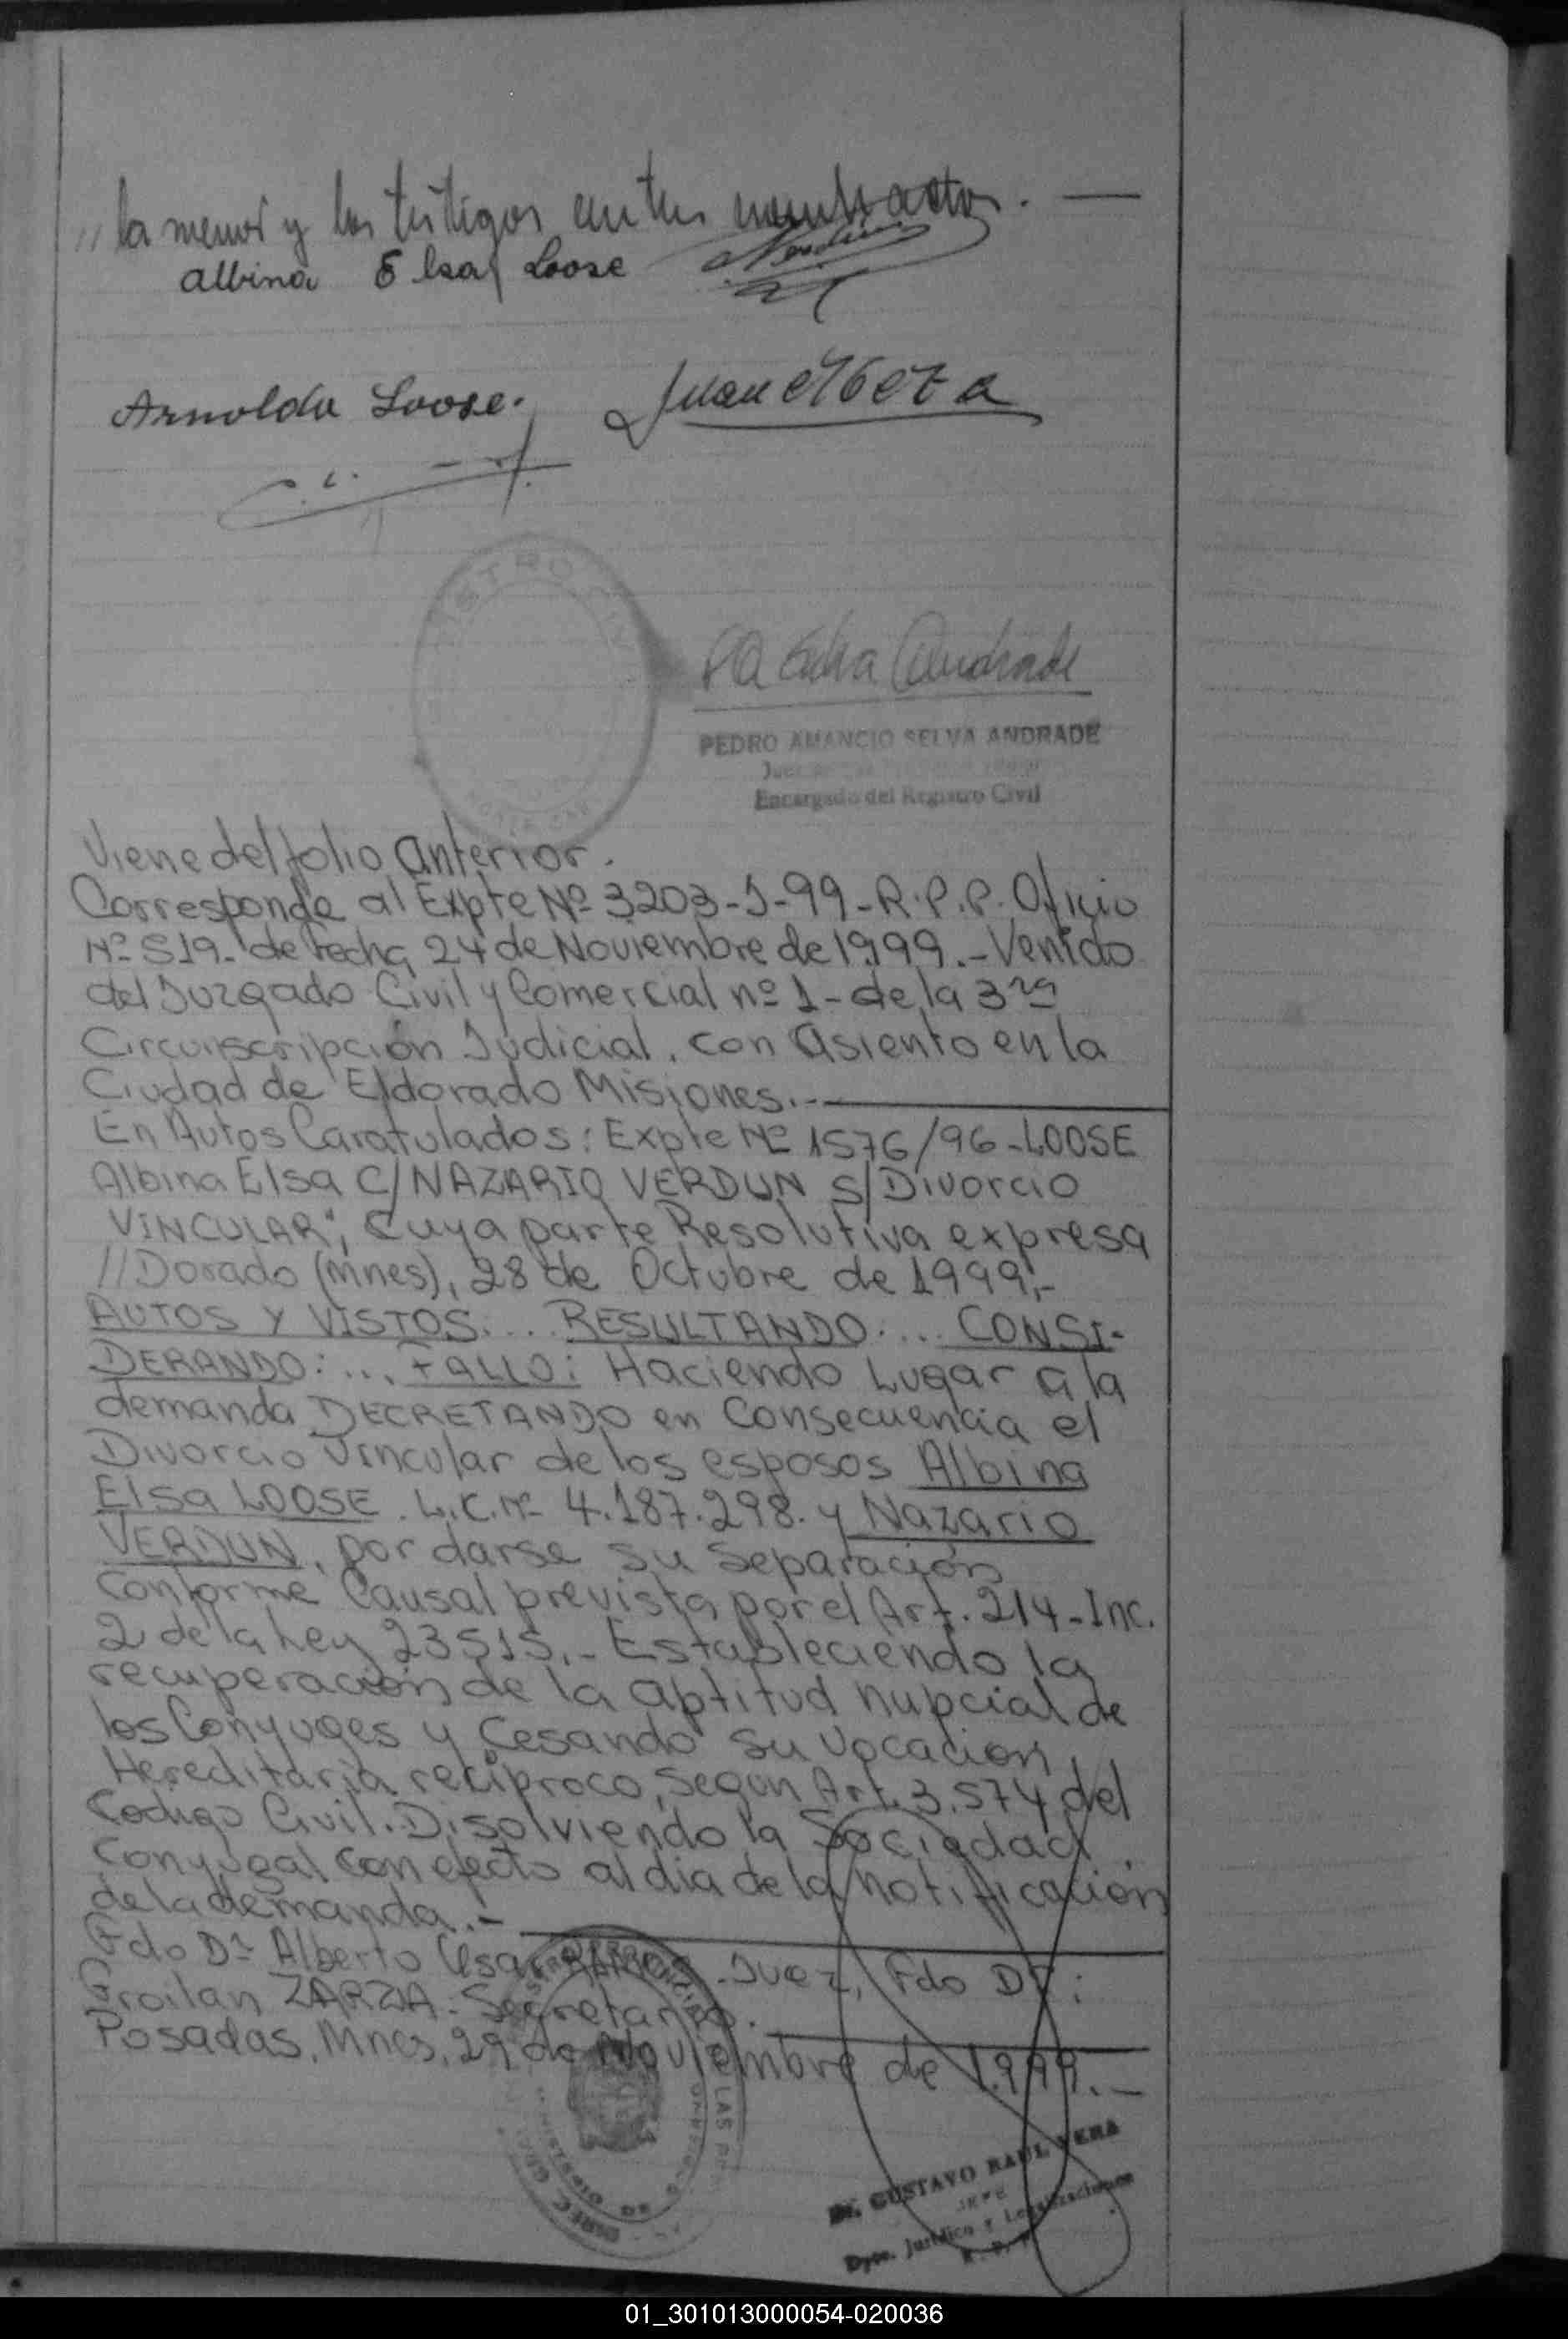 // la menor y los testigos antes nombrados. —
Albina Elsa Loose
Arnoldo Loose.
Juan
REGISTRO CIVIL
PEDRO AMANCIO SELVA ANDRADE
Encargado del Registro Civil
Viene del folio anterior.
Corresponde al Expte Nº 3203-J-99-R.P.P. Oficio
Nº 519- de fecha 24 de Noviembre de 1999.- Venido
del Juzgado Civil y Comercial nº 1- de la 3ra
Circunscripción Judicial, con asiento en la
Ciudad de Eldorado Misiones.-
En Autos Caratulados: Expte Nº 1576/96-LOOSE
Albina Elsa C/ NAZARIO VERDUN S/ Divorcio
VINCULAR", cuya parte Resolutiva expresa
//Dorado (Mnes), 28 de Octubre de 1999,-
AUTOS Y VISTOS.... RESULTANDO.... CONSI-
DERANDO:.... FALLO: Haciendo Lugar a la
demanda DECRETANDO en Consecuencia el
Divorcio Vincular de los esposos Albina
Elsa LOOSE. L.C.Nº 4.187.298. y Nazario
VERDUN, por darse su Separación
conforme Causal prevista por el Art. 214-Inc.
2 de la Ley 23515.- Estableciendo la
recuperación de la aptitud nupcial de
los Cónyuges y Cesando su vocación
Hereditaria recíproco, según Art. 3.574 del
Codigo Civil. Disolviendo la Sociedad
Conyugal con efecto al dia de la notificación
de la demanda.-
Fdo Dr Alberto Cesar . Juez, Fdo Dr:
Froilan ZARZA- Secretario.
Posadas, Mnes, 29 de Noviembre de 1.999.-
Dr. GUSTAVO RAUL VERA
JEFE
Dpto. Jurídico y Legalizaciones
01_301013000054-020036